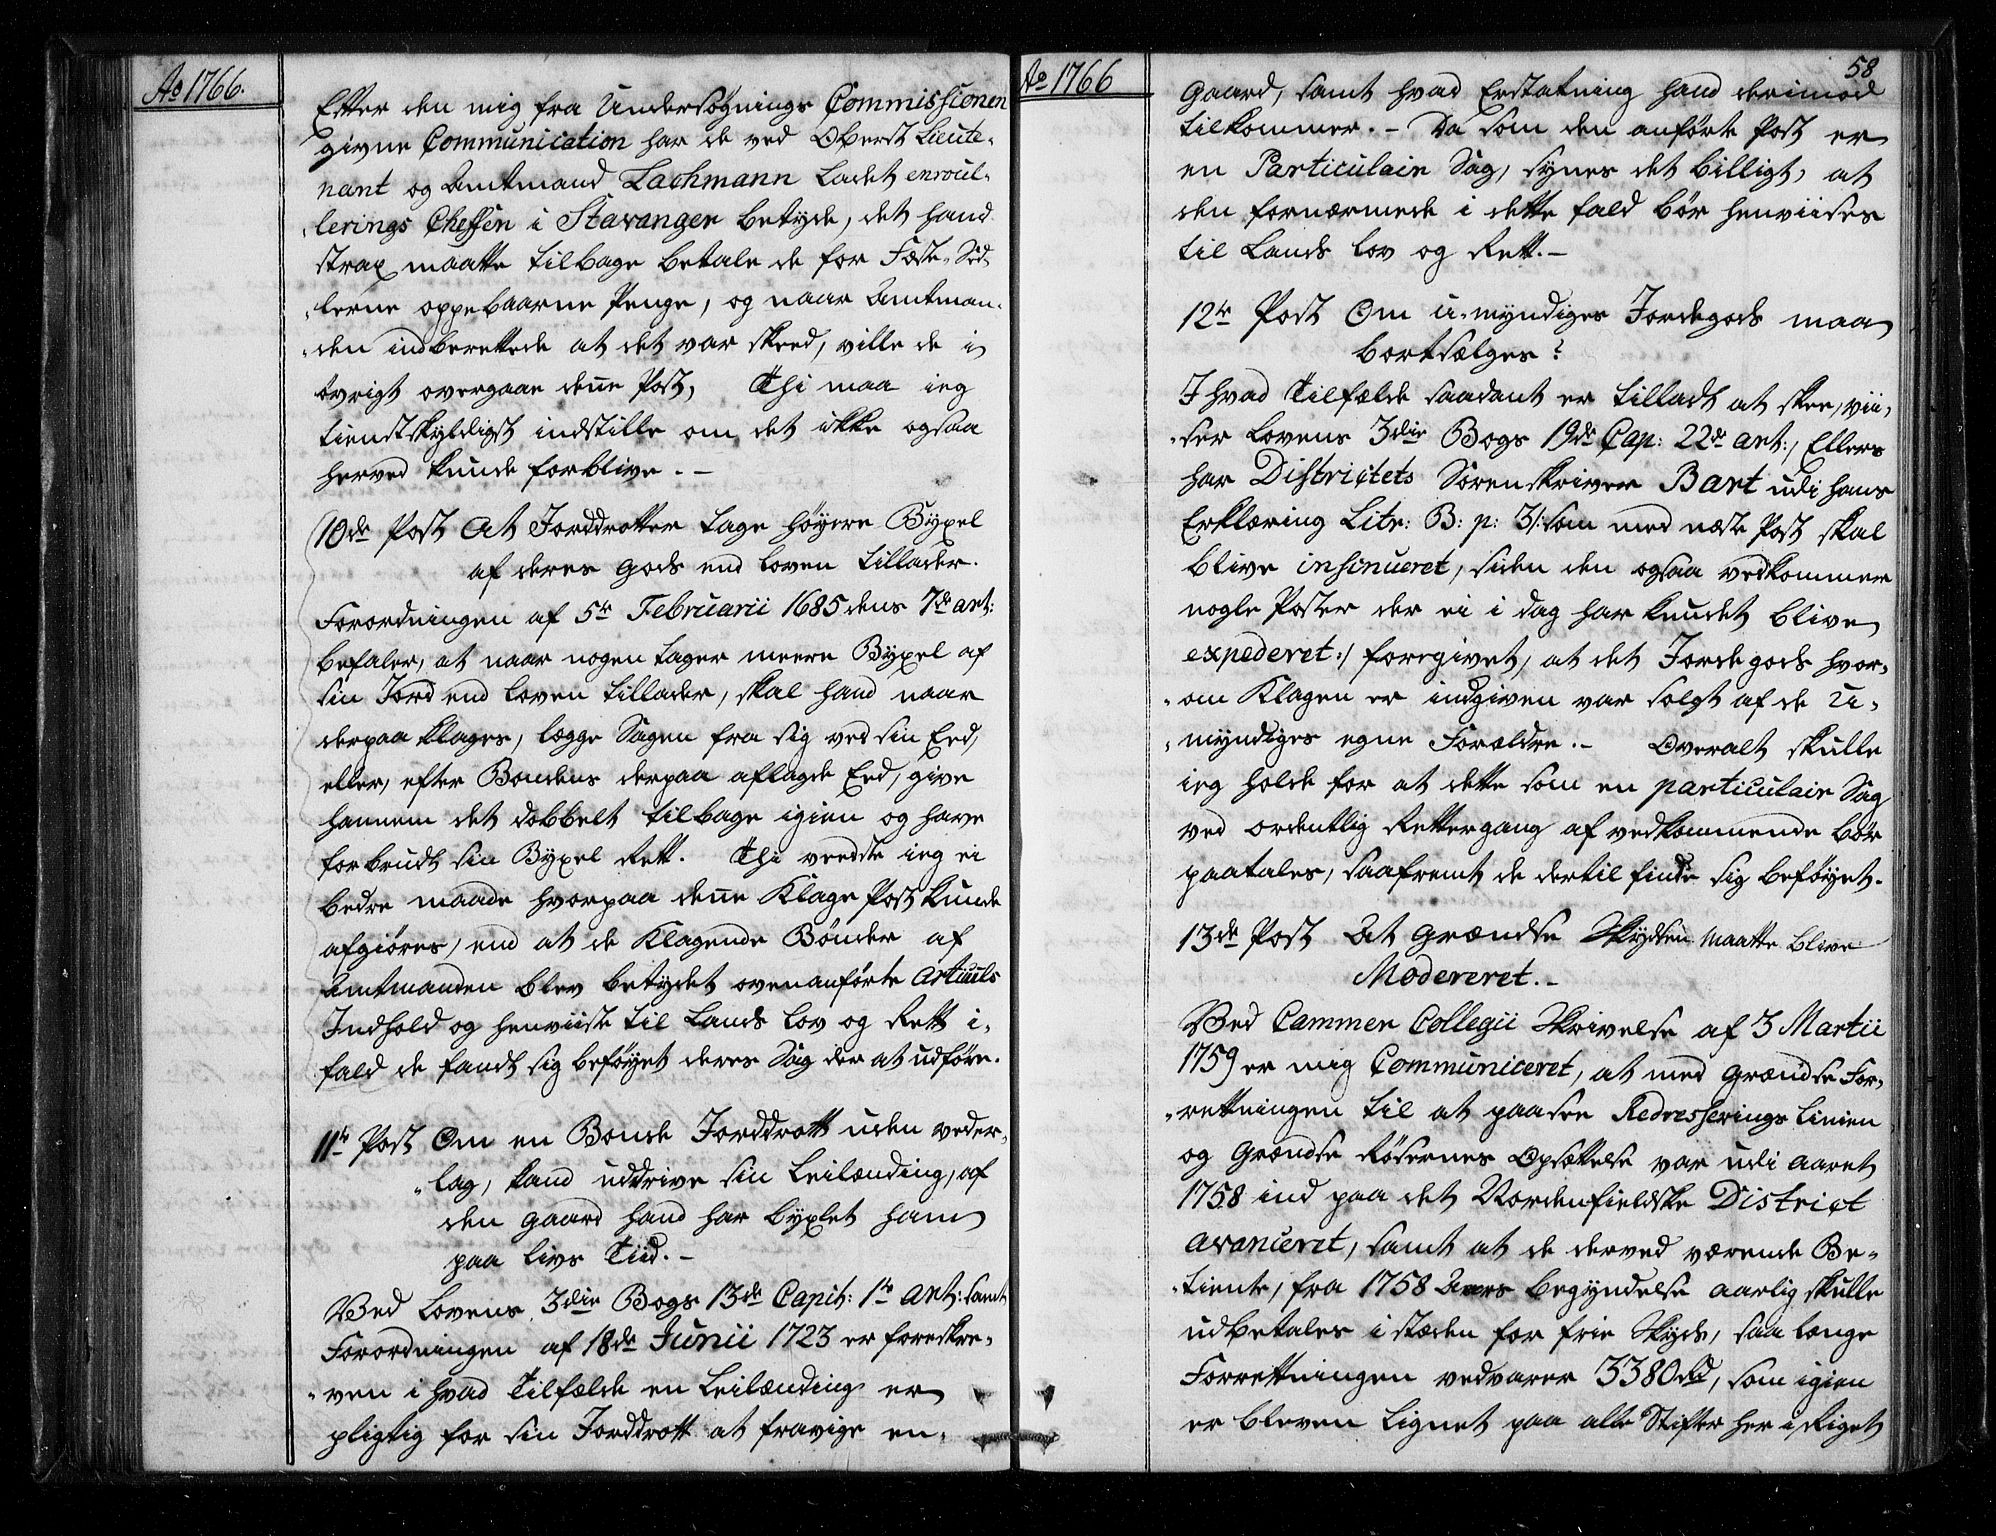 Ao 1766.
Efter den mig fra Undersøgnings Commissionen
givne Communication har de ved Oberst Lieute-
nant og Amtmand Lachmann ladet enroul-
lerings Cheffen i Stavanger betyde, det hand
strax maatte tilbage betale de for Fæste-Sed-
lerne oppebaarne Penge, og naar Amtman-
den indberettede at det var skeed, ville de i
øvrigt overgaae denne Post, Thi maa ieg
tienstskyldigst indstille om det ikke ogsaa
herved kunde forblive. -
10de Post At Jorddrotter tage høyere Bÿxel
af deres Gods end Loven tillader.
Forordningen af 5te Februarii 1685 dens 7de art:
befaler, at naar nogen tager meere Bÿxel af
sin Jord end Loven tillader, skal hand naar
derpaa klages, lægge Sagen fra sig ved sin Eed,
eller, efter Bondens derpaa aflagde Eed, give
hannem det dobbelt tilbage igien og have
forbrudt sin Bÿxel Rett. Thi veedste ieg ei
bedre maade hvorpaa denne Klage Post kunde
afgiøres, end at de Klagende Bønder af
Amtmanden blev betydet ovenanførte Articuls
Indhold og henviiste til Lands Lov og Rett i-
fald de fandt sig beføyet deres Sag der at udføre.
11te Post Om en Bonde Jorddrott uden veder-
lag, kand uddrive sin Leilænding, af
den gaard hand har bÿxlet ham
paa Livs Tiid. -
Ved Lovens 3die Bogs 13de Capit: 1te Art: samt
Forordningen af 18de Junii 1723 er foreskre-
ven i hvad Tilfælde en Leilænding er
pligtig for sin Jorddrott at fravige en
Ao 1766
58
Gaard, samt hvad Erstatning hand derimod
tilkommer. - Da som den anførte Post er
en Particulair Sag, synes det billigt, at
den fornærmede i dette fald bør henviises
til Lands Lov og Rett. -
12te Post Om u-myndiges Jordegods maa
bortsælges?
I hvad Tilfælde saadant er tilladt at skee, vii-
ser Lovens 3die Bogs 19de Cap: 22de art:, Ellers
har Districtets Sorenskriver Bart udi hans
Erklæring Litr: B: p: 3/: som med næste Post skal
blive insinueret, siden den ogsaa vedkommer
nogle Poster der ei i dag har kundet blive
expederet:/ foregivet, at det Jordegods hvor-
om Klagen er indgiven var solgt af de U-
myndiges egne Forældre. - Overalt skulle
ieg holde for at dette som en particulair Sag
ved ordentlig Rettergang af vedkommende bør
paatales, saafremt de dertil finde sig beføyet.
13de Post At Grændse Skydsen maatte blive
Modereret. -
Ved Cammer Collegii Skrivelse af 3 Martii
1759 er mig Communiceret, at med Grændse For-
rettningen til at paasee Redresserings Linien
og Grændse Røsernes Opsættelse var udi Aaret
1758 ind paa det Nordenfieldske District
avanceret, samt at de derved værende Be-
tiente, fra 1758 Aars begyndelse aarlig skulle
udbetales i stæden for frie Skyds, saa længe
Forrettningen vedvarer 3380 rd, som igien
er bleven Lignet paa alle Stifter her i Riget